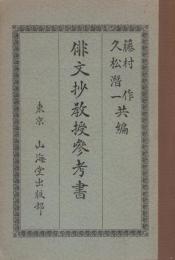 藤村作
久松潜一共編
俳文抄教授參考書
東京 山海堂出版部